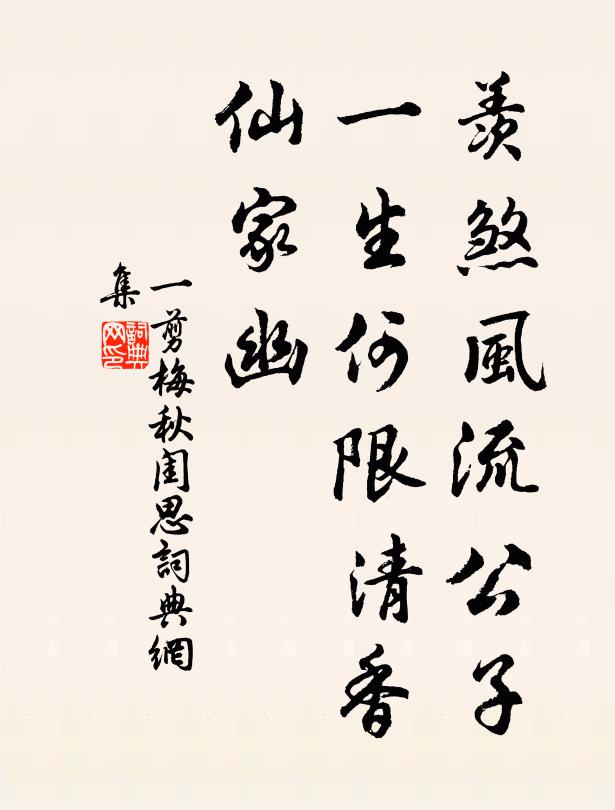 羨煞風流公子
一生何限清香
仙家幽
一剪梅秋閨思詞典網
集
詞典
网印